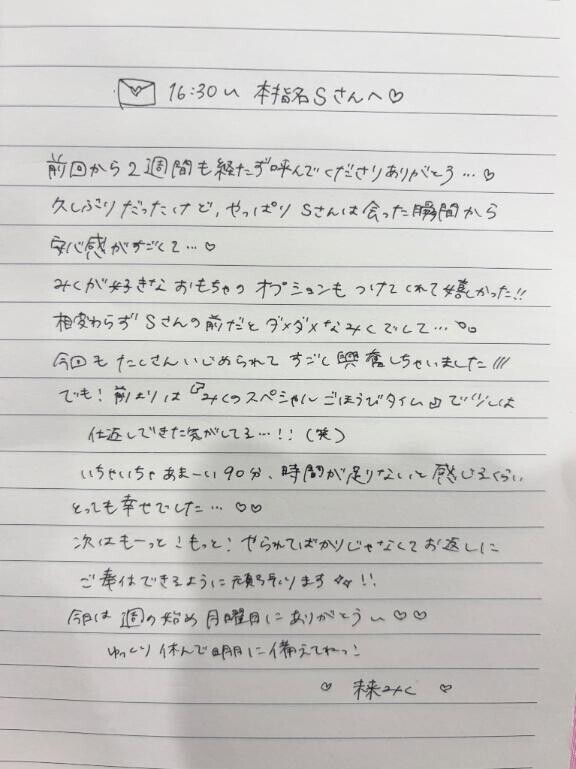 16:30〜 本指名Sさんへ♡
前回から2週間も経たず呼んでくださりありがとう…♡
久しぶりだったけど、やっぱりSさんは会った瞬間から
安心感がすごくて…♡
みくが好きなおもちゃのオプションもつけてくれて嬉しかった!!
相変わらずSさんの前だとダメダメなみくでして…
今回もたくさんいじめられてすごく興奮しちゃいました!!!
でも!前よりは『みくのスペシャルごほうびタイム』で少しは
仕返しできた気がしてる…!!(笑)
いちゃいちゃあまーい90分、時間が足りないと感じるくらい
とっても幸せでした…♡♡
次はもーっと!もっと!やられてばかりじゃなくてお返しに
ご奉仕できるように頑張ります!!
今日は週の始め月曜日にありがとう〜♡♡
ゆっくり休んで明日に備えてねっ!
♡ 未来みく ♡